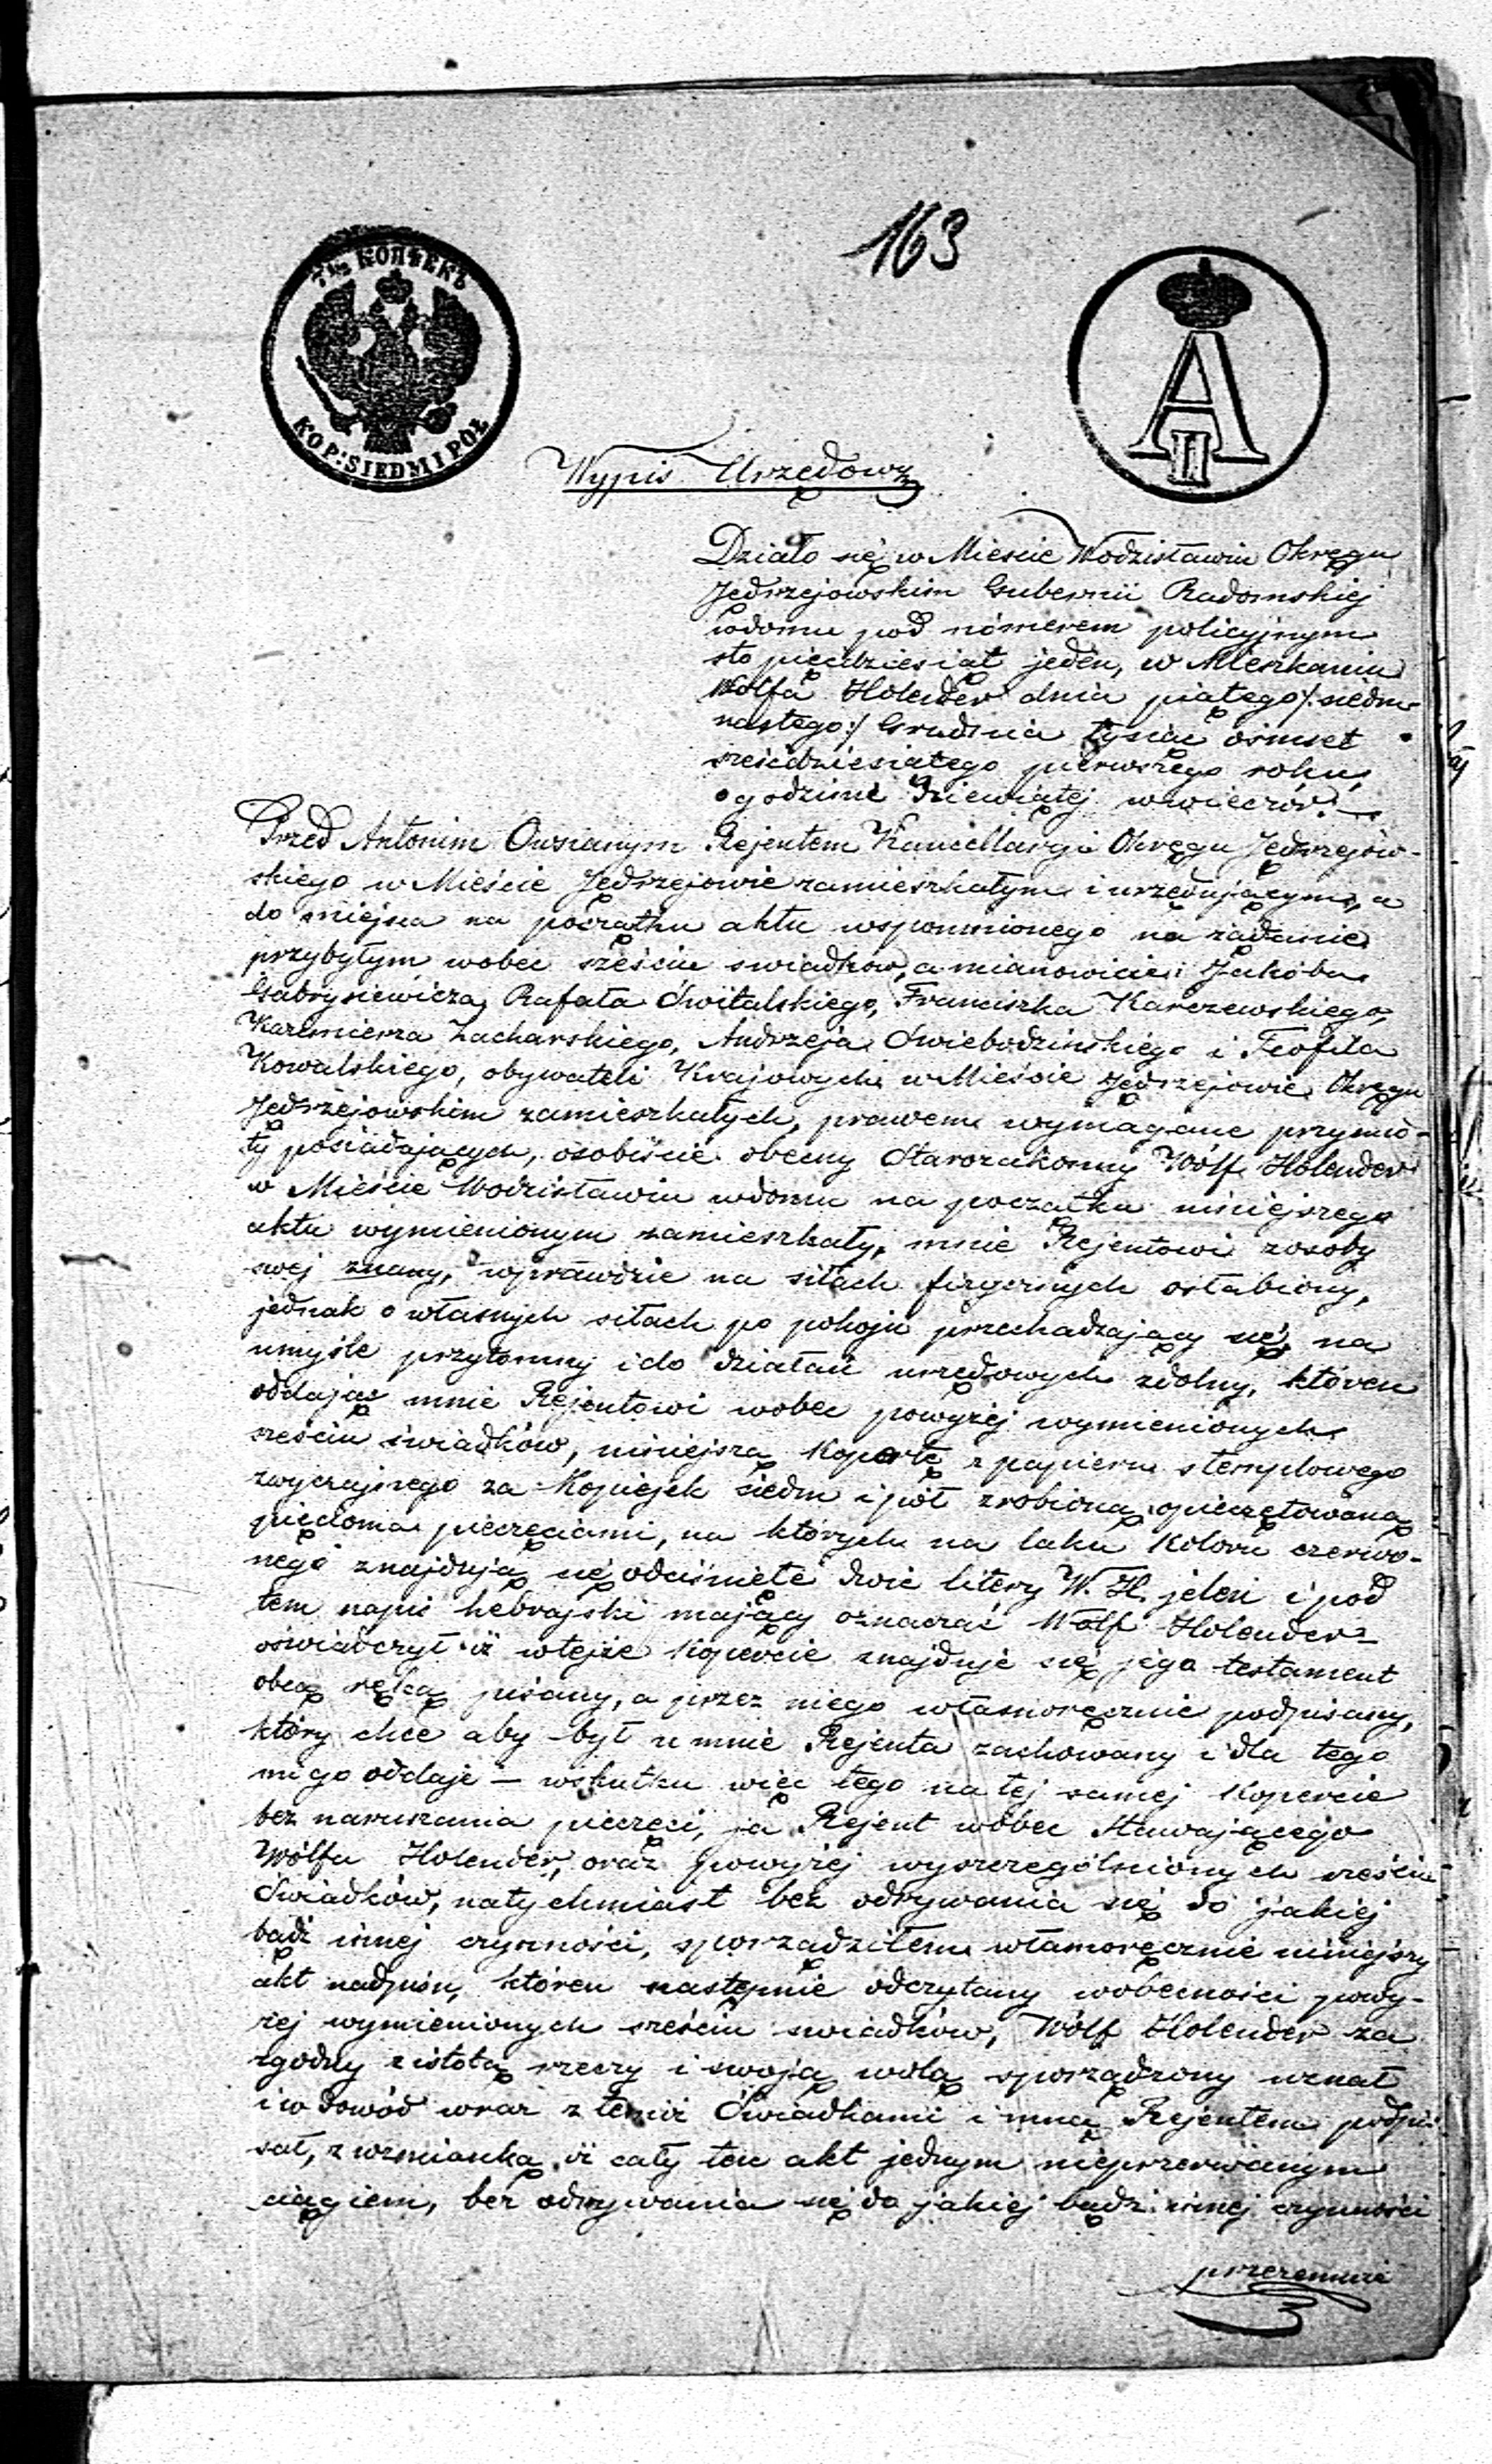 163
7 1/2 КОПѢЕКЪ
KOP: SIEDM I PÓŁ
A II
Wypis Urzędowy
Działo się w Mieście Wodzisławiu Okręgu
Jędrzejowskim Gubernii Radomskiej
w domu pod nómerem policyjnym
sto pięćdziesiąt jeden, w Mieszkaniu
Wolfa Holender dnia piątego /: siedm-
nastego :/ Grudnia tysiąc ośmset
sześćdziesiątego pierwszego roku,
o godzinie dziewiątej w wieczór. —
Przed Antonim Owsianym Rejentem Kancellaryi Okręgu Jędrzejow-
skiego w Mieście Jędrzejowie zamieszkałym i urzędującym, a
do miejsca na początku aktu wspomnionego na żądanie
przybyłym wobec sześciu swiadków, a mianowicie: Jakóba
Gabrysiewicza, Rafała Switalskiego, Franciszka Karczewskiego,
Kazimierza Zacharskiego, Andrzeja Swiebodzińskiego i Teofila
Kowalskiego, obywateli Krajowych w Mieście Jędrzejowie Okręgu
Jędrzejowskim zamieszkałych, prawem wymagane przymio-
ty posiadających, osobiście obecny Starozakonny Wólf Holender
w Mieście Wodzisławiu w domu na początku niniejszego
aktu wymienionym zamieszkały, mnie Rejentowi z osoby
swej znany, wprawdzie na siłach fizycznych osłabiony,
jednak o własnych siłach po pokoju przechadzający się, na
umyśle przytomny i do działań urzędowych zdolny, któren
oddając mnie Rejentowi wobec powyżej wymienionych
sześciu świadków, niniejszą Kopertę z papieru stemplowego
zwyczajnego za Kopiejek siedm i pół zrobioną opieczętowaną
pięcioma pieczęciami, na których na laku Koloru czerwo-
nego znajdują się odciśnięte dwie litery W. H. jeleń i pod
tem napis hebrajski mający oznaczać Wolf Holender
oświadczył iż w tejże Kopercie znajduje się jego testament
obcą ręką pisany, a przez niego własnoręcznie podpisany,
który chce aby był u mnie Rejenta zachowany i dla tego
mi go oddaje — wskutku więc tego na tej samej Kopercie
bez naruszania pieczęci, ja Rejent wobec Stawającego
Wólfa Holender, oraz powyżej wyszczególnionych sześciu
Swiadków, natychmiast bez odrywania się do jakiej
bądź innej czynności, sporządziłem własnoręcznie niniejszy
akt nadpisu, któren następnie odczytany w obecności powy-
żej wymienionych sześciu swiadków, Wólf Holender za
zgodny z istotą rzeczy i swoją wolą sporządzony uznał
i w dowód wraz z temiż Swiadkami i mną Rejentem podpi-
sał, z wzmianką iż cały ten akt jednym nieprzerwanym
ciągiem, bez odrywania się do jakiej bądź innej czynności
przezemnie